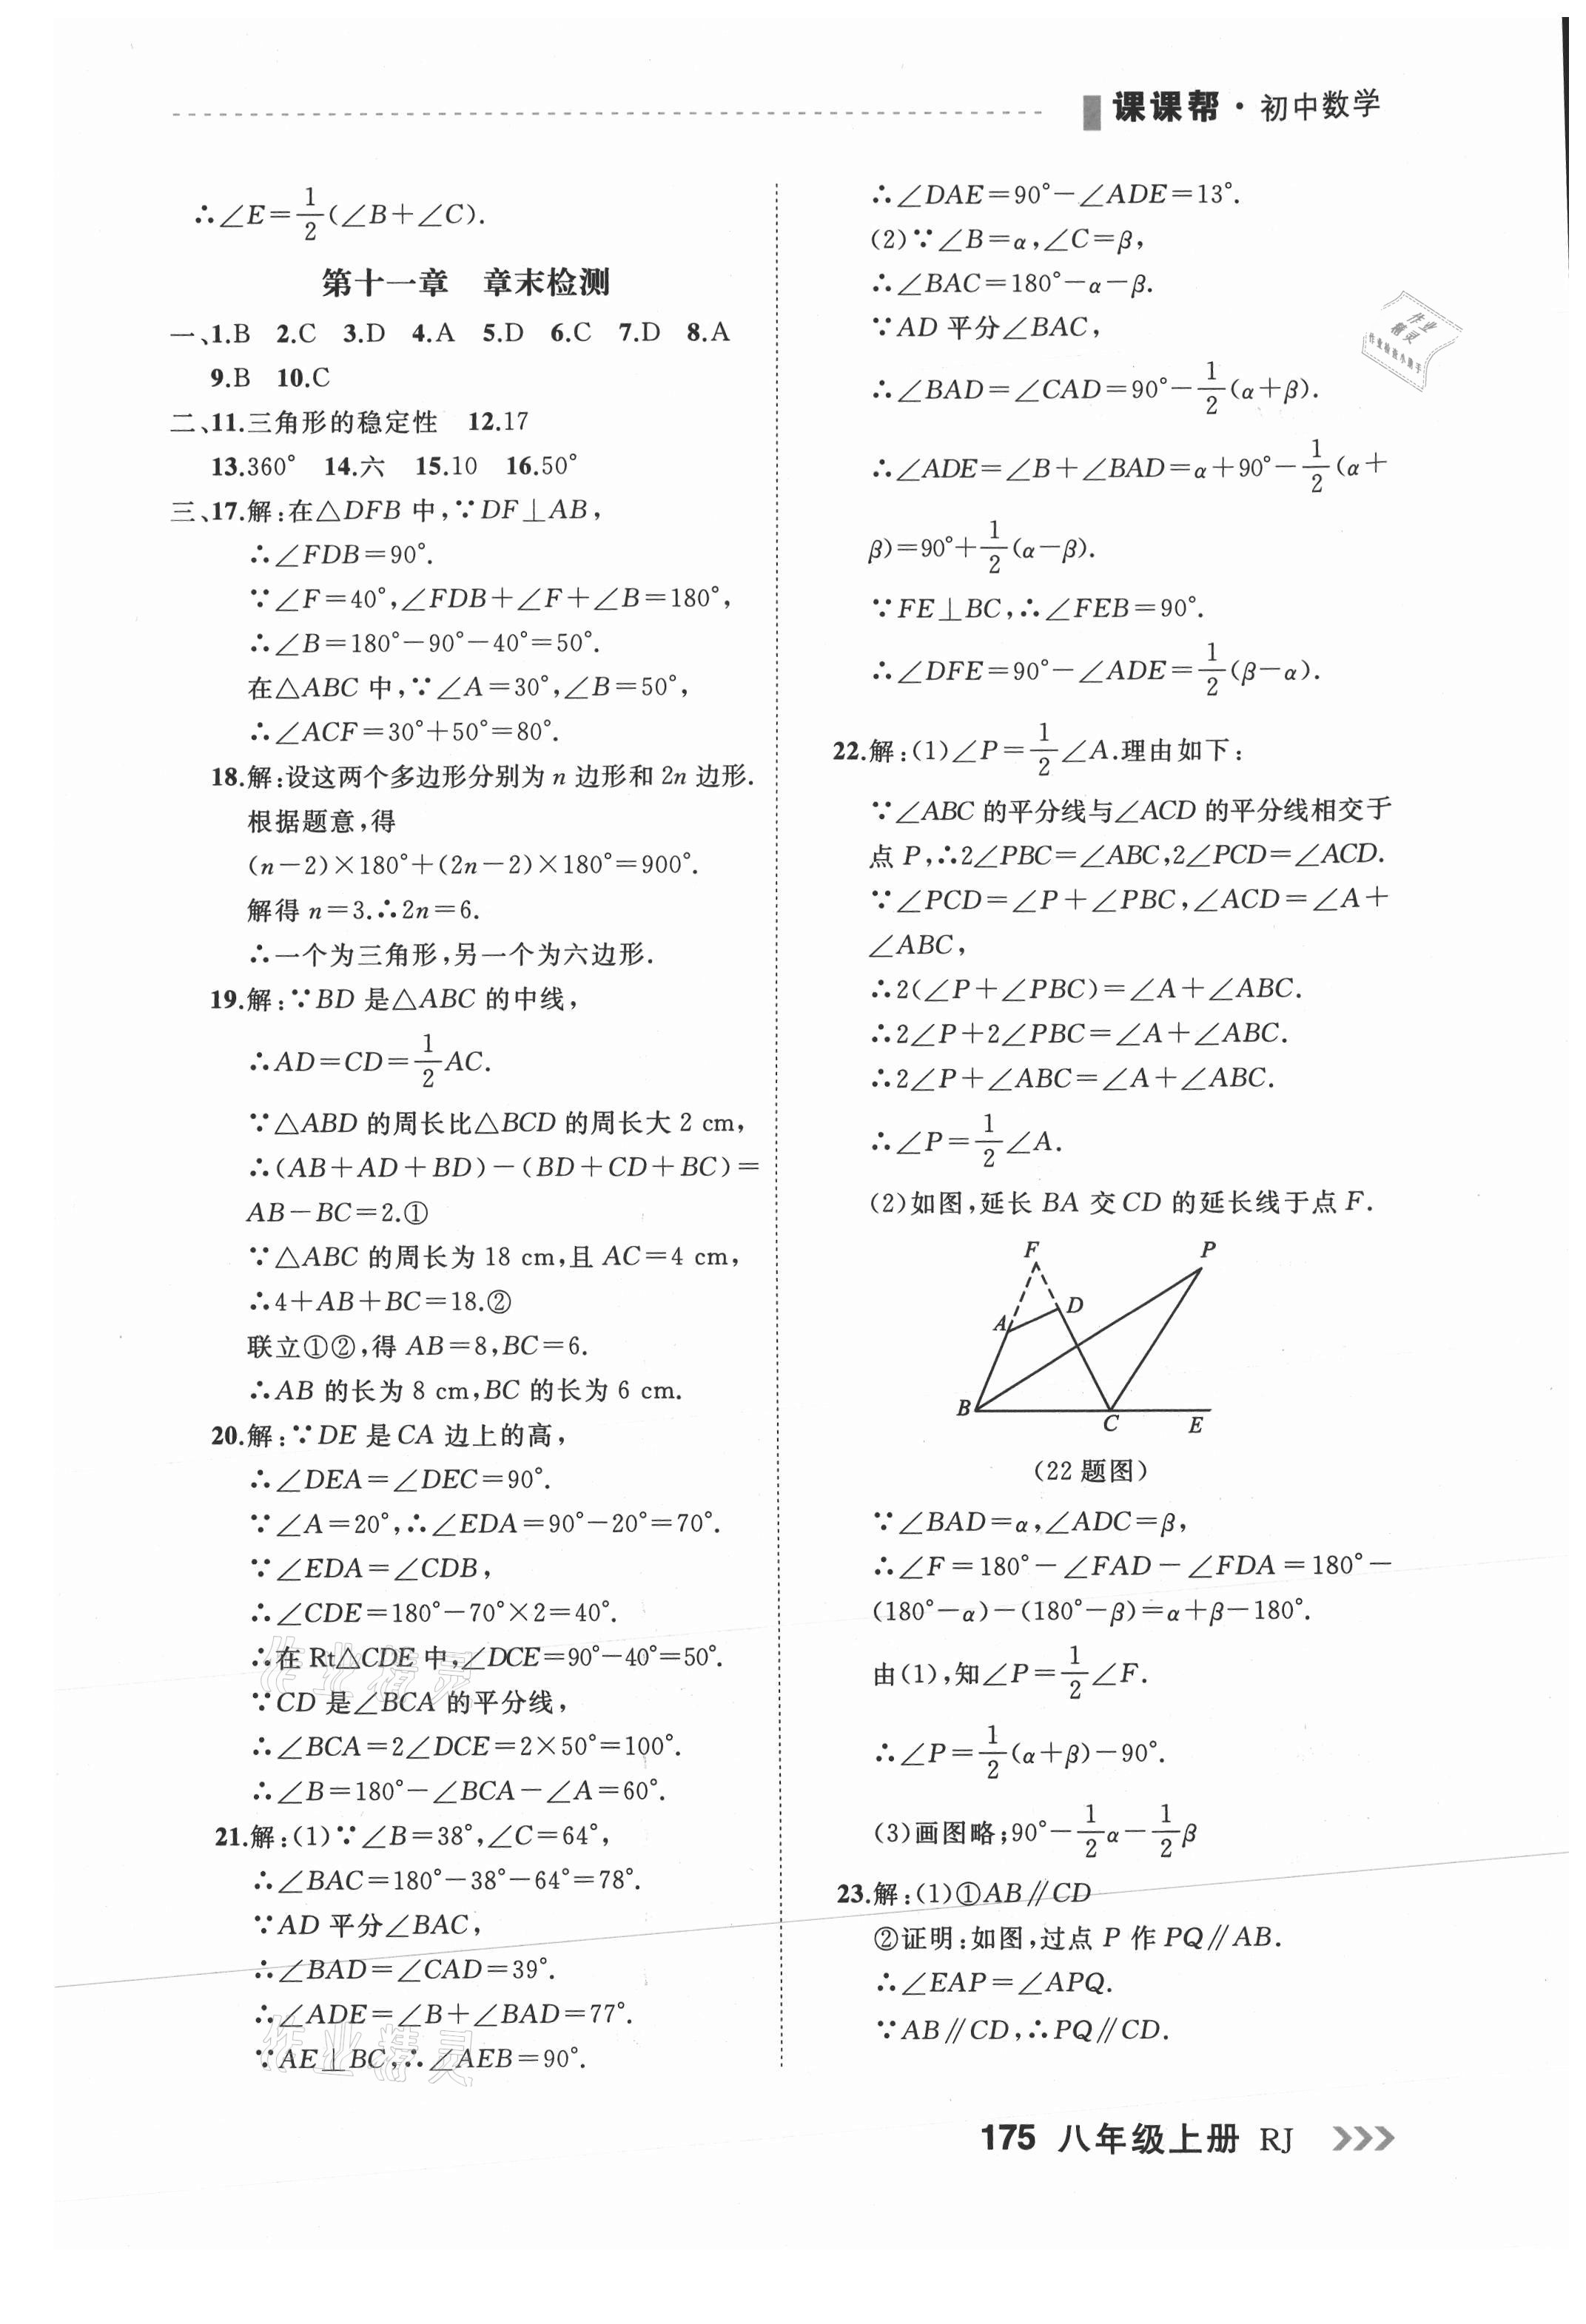 课课帮·初中数学
∴∠E=1/2(∠B+∠C).
第十一章 章末检测
一、1.B 2.C 3.D 4.A 5.D 6.C 7.D 8.A
9.B 10.C
二、11.三角形的稳定性 12.17
13.360° 14.六 15.10 16.50°
三、17.解:在△DFB 中,∵DF⊥AB,
∴∠FDB=90°.
∵∠F=40°,∠FDB+∠F+∠B=180°,
∴∠B=180°-90°-40°=50°.
在△ABC 中,∵∠A=30°,∠B=50°,
∴∠ACF=30°+50°=80°.
18.解:设这两个多边形分别为 n 边形和 2n 边形.
根据题意,得
(n-2)×180°+(2n-2)×180°=900°.
解得 n=3.∴2n=6.
∴一个为三角形,另一个为六边形.
19.解:∵BD 是△ABC 的中线,
∴AD=CD=1/2AC.
∵△ABD 的周长比△BCD 的周长大 2 cm,
∴(AB+AD+BD)-(BD+CD+BC)=
AB-BC=2.①
∵△ABC 的周长为 18 cm,且 AC=4 cm,
∴4+AB+BC=18.②
联立①②,得 AB=8,BC=6.
∴AB 的长为 8 cm,BC 的长为 6 cm.
20.解:∵DE 是CA 边上的高,
∴∠DEA=∠DEC=90°.
∵∠A=20°,∴∠EDA=90°-20°=70°.
∵∠EDA=∠CDB,
∴∠CDE=180°-70°×2=40°.
∴在 Rt△CDE 中,∠DCE=90°-40°=50°.
∵CD 是∠BCA 的平分线,
∴∠BCA=2∠DCE=2×50°=100°.
∴∠B=180°-∠BCA-∠A=60°.
21.解:(1)∵∠B=38°,∠C=64°,
∴∠BAC=180°-38°-64°=78°.
∵AD 平分∠BAC,
∴∠BAD=∠CAD=39°.
∴∠ADE=∠B+∠BAD=77°.
∵AE⊥BC,∴∠AEB=90°.
∴∠DAE=90°-∠ADE=13°.
(2)∵∠B=α,∠C=β,
∴∠BAC=180°-α-β.
∵AD 平分∠BAC,
∴∠BAD=∠CAD=90°-1/2(α+β).
∴∠ADE=∠B+∠BAD=α+90°-1/2(α+
β)=90°+1/2(α-β).
∵FE⊥BC,∴∠FEB=90°.
∴∠DFE=90°-∠ADE=1/2(β-α).
22.解:(1)∠P=1/2∠A.理由如下:
∵∠ABC 的平分线与∠ACD 的平分线相交于
点 P,∴2∠PBC=∠ABC,2∠PCD=∠ACD.
∵∠PCD=∠P+∠PBC,∠ACD=∠A+
∠ABC,
∴2(∠P+∠PBC)=∠A+∠ABC.
∴2∠P+2∠PBC=∠A+∠ABC.
∴2∠P+∠ABC=∠A+∠ABC.
∴∠P=1/2∠A.
(2)如图,延长 BA 交 CD 的延长线于点 F.
F P
A D
B C E
(22 题图)
∵∠BAD=α,∠ADC=β,
∴∠F=180°-∠FAD-∠FDA=180°-
(180°-α)-(180°-β)=α+β-180°.
由(1),知∠P=1/2∠F.
∴∠P=1/2(α+β)-90°.
(3)画图略;90°-1/2α-1/2β
23.解:(1)①AB∥CD
②证明:如图,过点 P 作 PQ∥AB.
∴∠EAP=∠APQ.
∵AB∥CD,∴PQ∥CD.
作业精灵
作业检查小助手
作业精灵
作业精灵
175 八年级上册 RJ